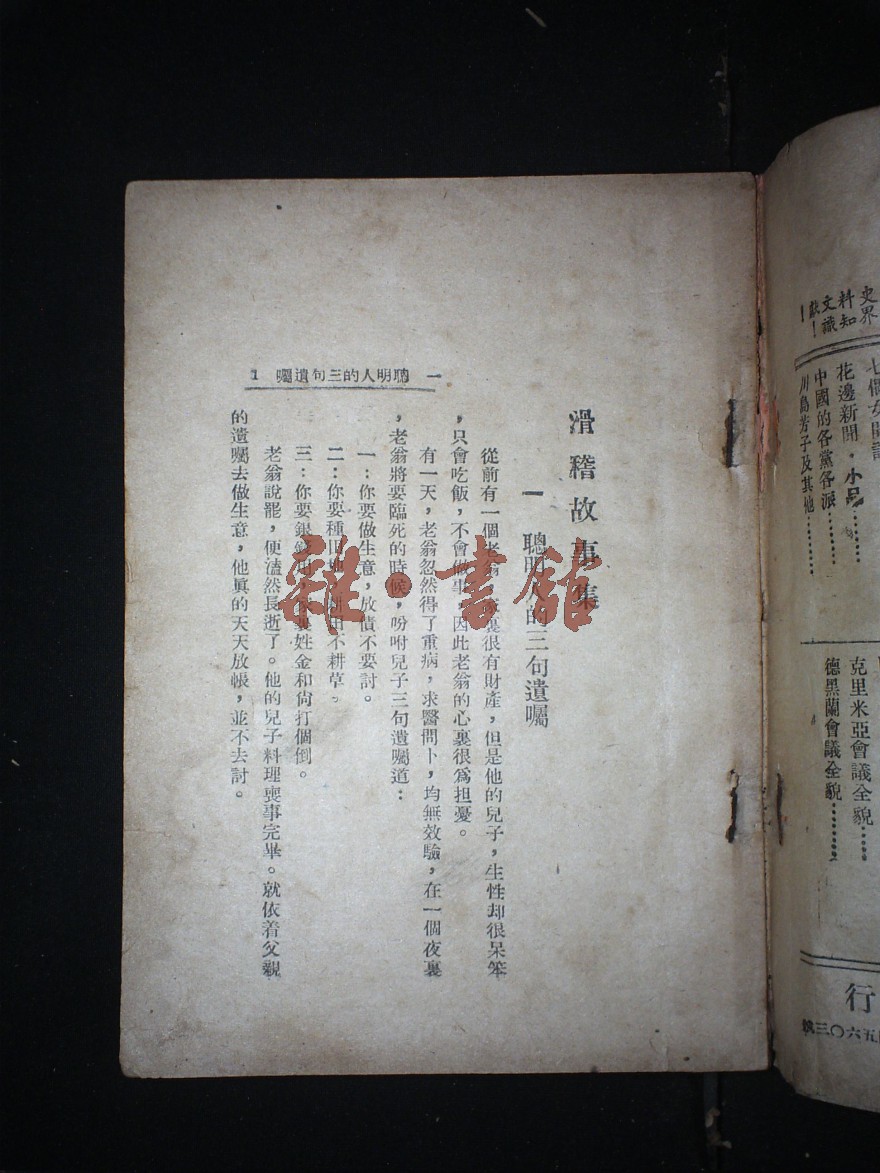 史界
料知
文識
獻!
!
七個女間諜
花邊新聞·小品………
中國的各黨各派………
川島芳子及其他………
克里米亞會議全貌……
德黑蘭會議全貌………
行
五六〇三
滑稽故事集
一 聰明人的三句遺囑
從前有一個老翁,家裏很有財產,但是他的兒子,生性却很呆笨
,只會吃飯,不會做事,因此老翁的心裏很爲担憂。
有一天,老翁忽然得了重病,求醫問卜,均無效驗,在一個夜裏
,老翁將要臨死的時候,吩咐兒子三句遺囑道:
一:你要做生意,放債不要討。
二:你要種田地,耕田不耕草。
三:你要銀錢用,家裏姓金和尙打個倒。
老翁說罷,便溘然長逝了。他的兒子料理喪事完畢。就依着父親
的遺囑去做生意,他眞的天天放帳,並不去討。
一 聰明人的三句遺囑 1
雜·書館